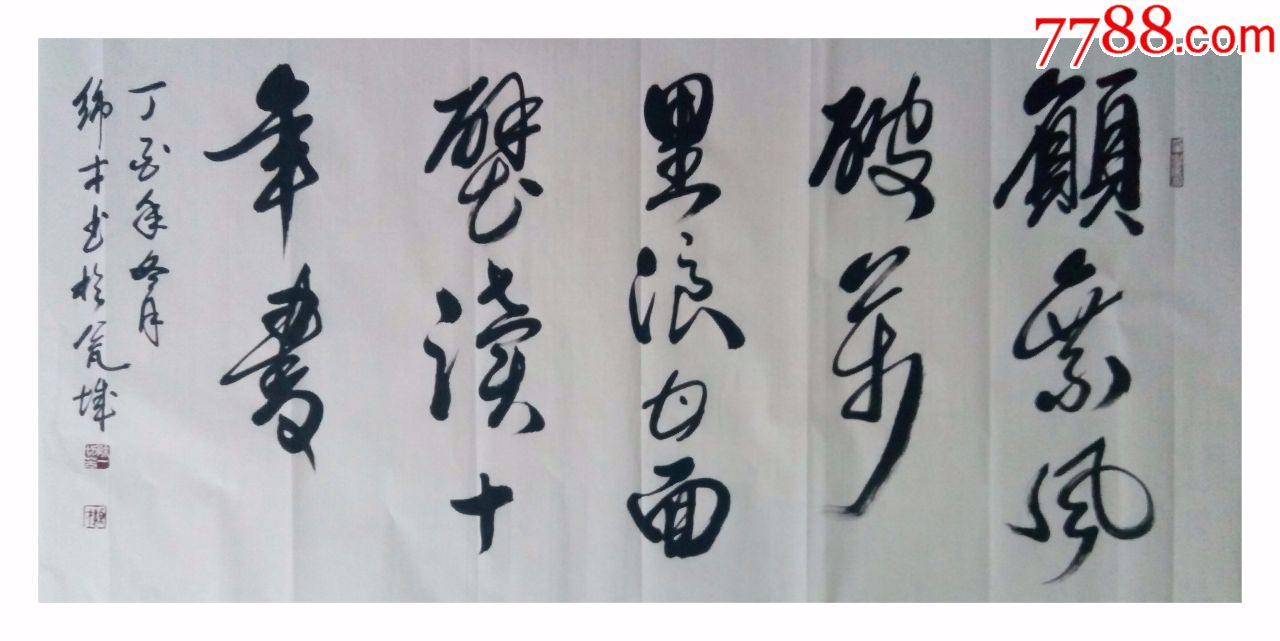 7788.com
願乘風
破萬
里浪甘面
壁讀十
年書
丁酉年冬月
才书於瓮城